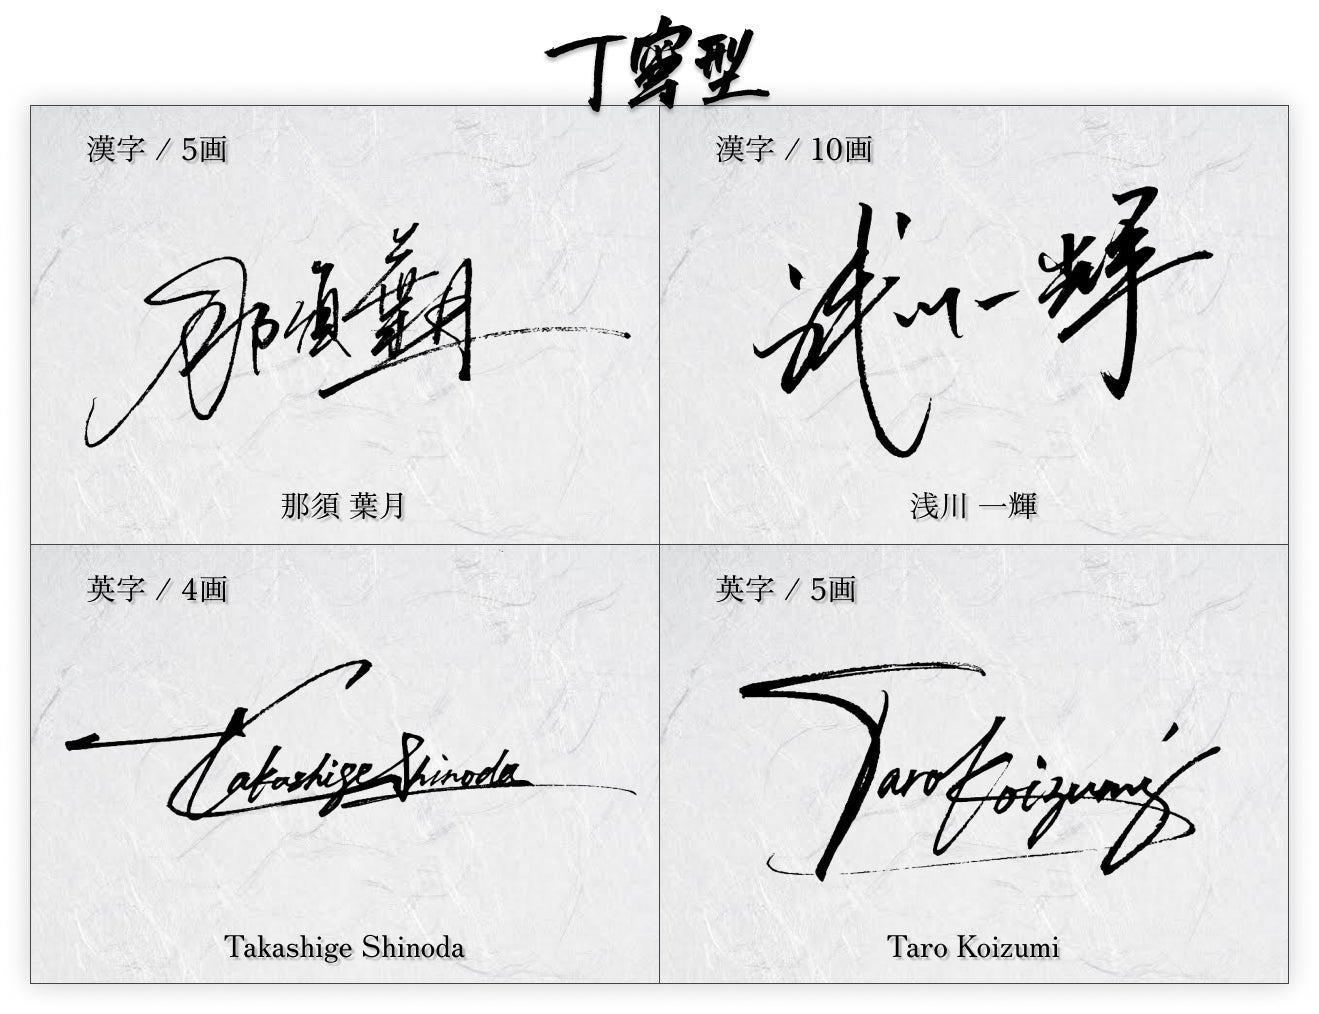 丁寧型
漢字 / 5画
那須葉月
那須 葉月
漢字 / 10画
浅川一輝
浅川 一輝
英字 / 4画
Takashige Shinoda
Takashige Shinoda
英字 / 5画
Taro Koizumi
Taro Koizumi